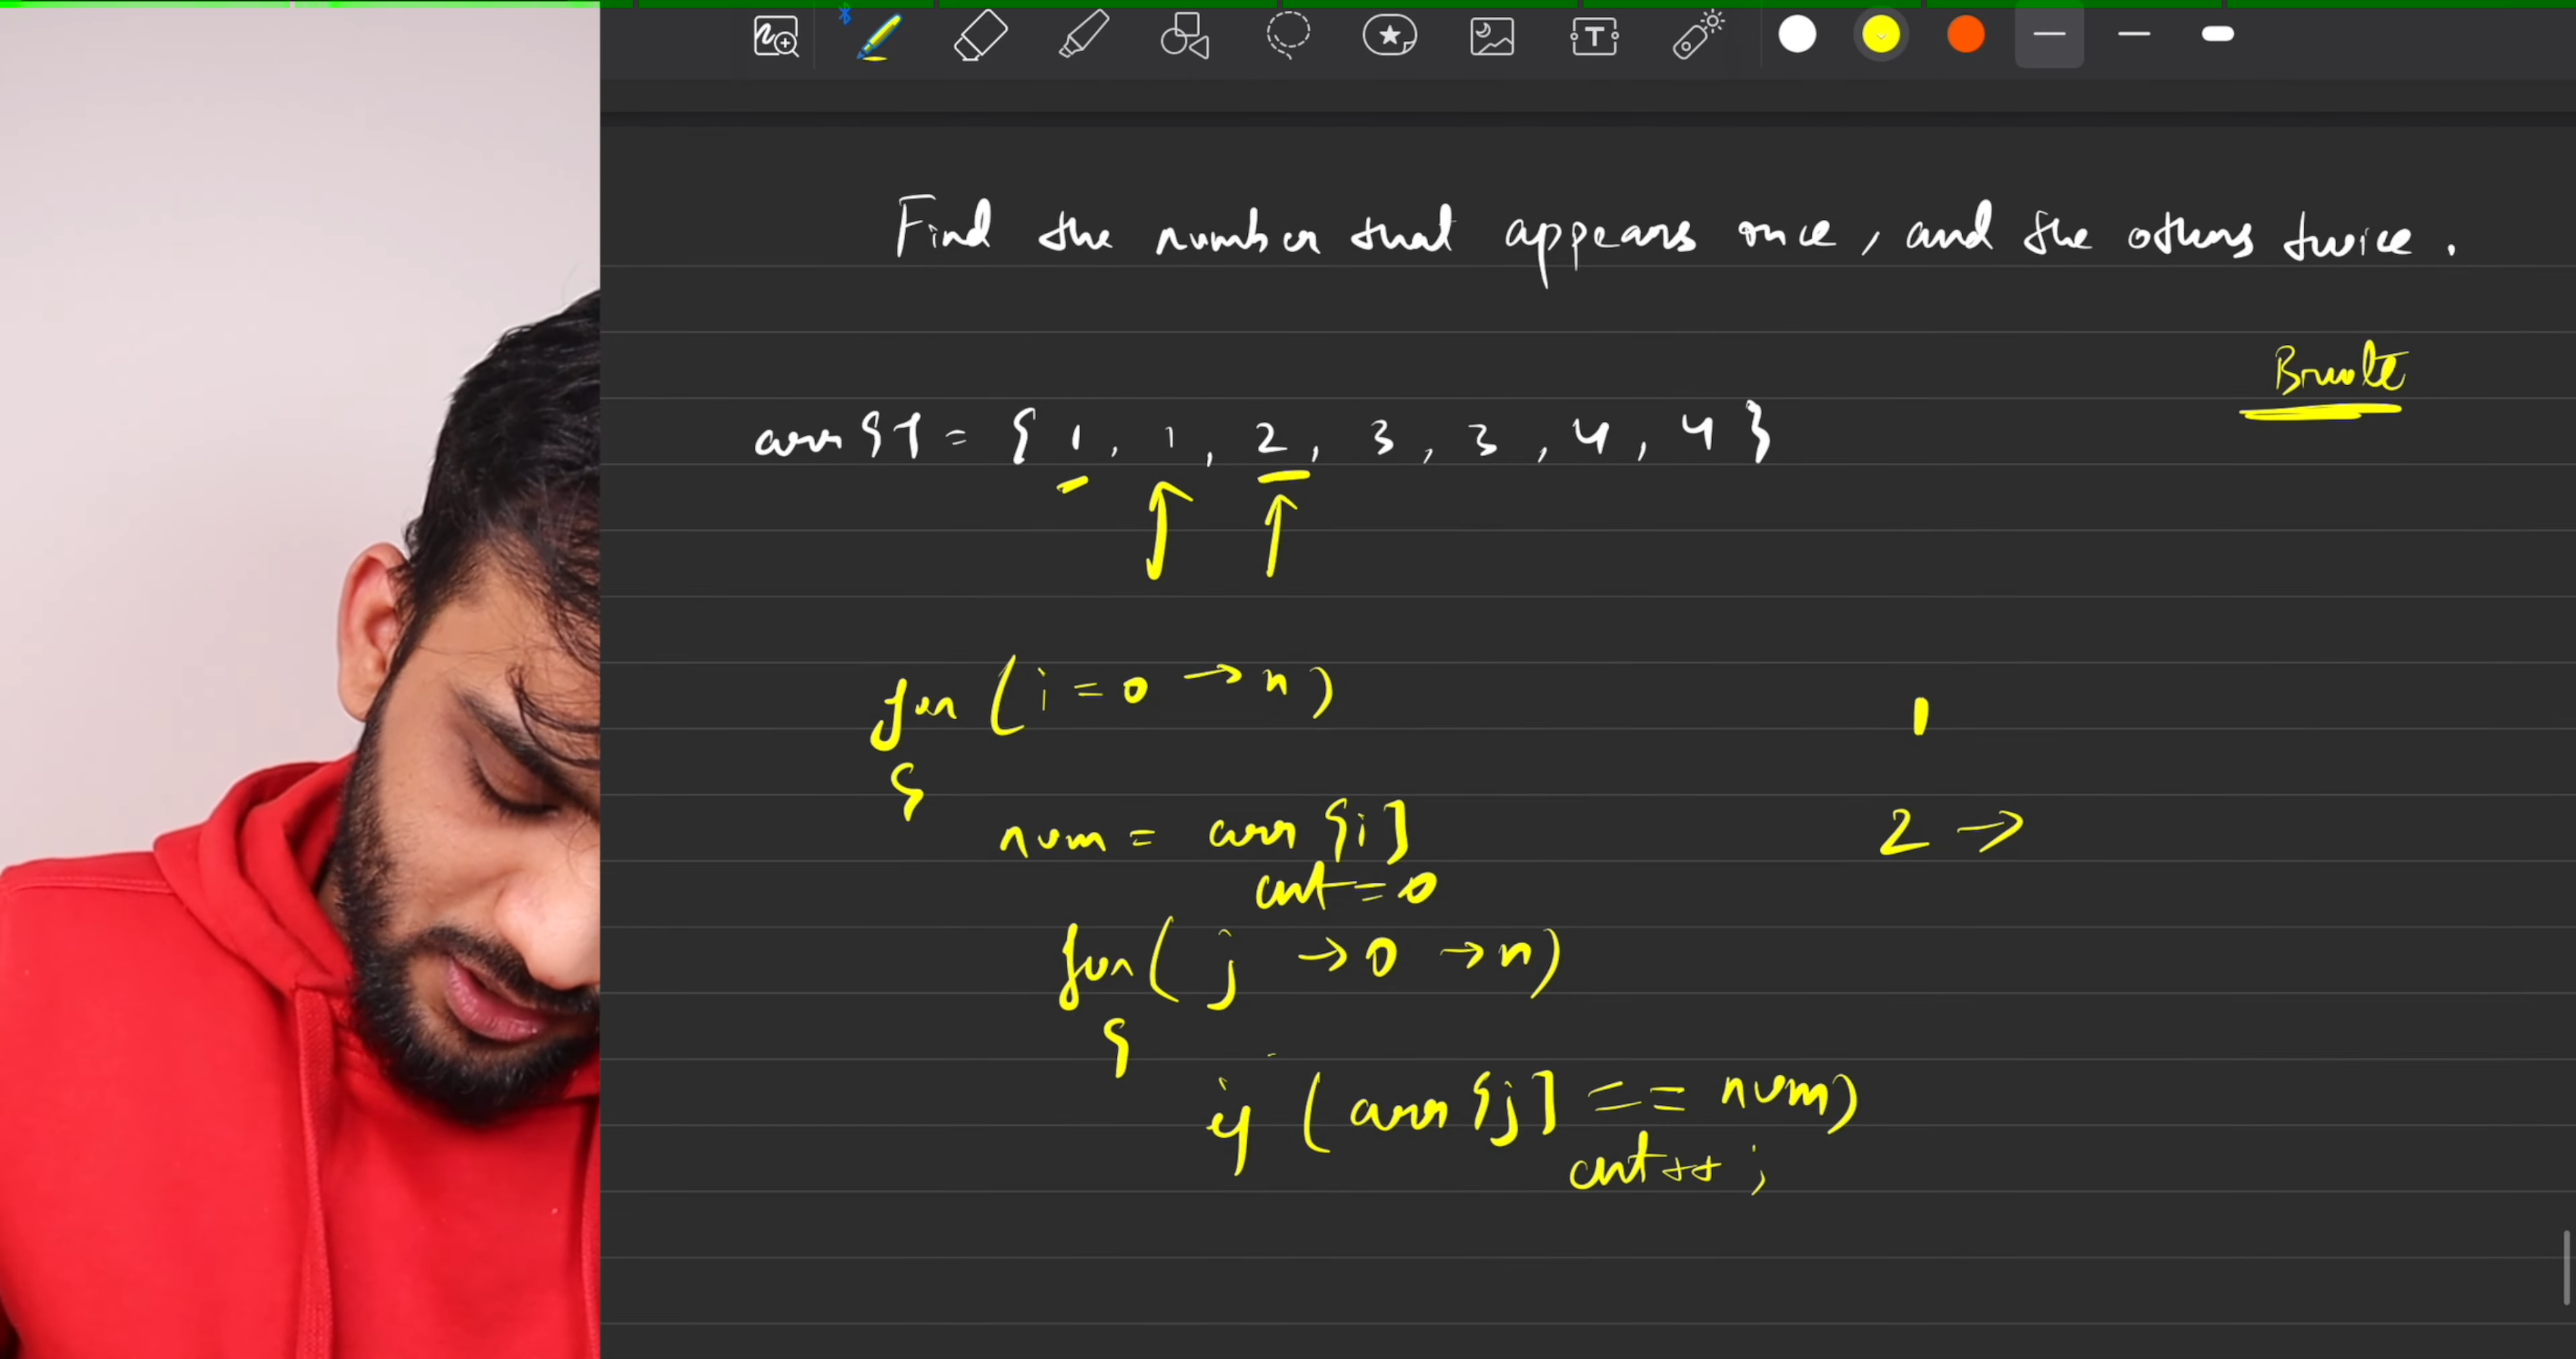 Find the number that appears once, and the others twice.
Brute
arr[] = { 1, 1, 2, 3, 3, 4, 4 }
for (i = 0 → n)
1
{
num = arr[i]
2 →
cnt = 0
for ( j → 0 → n)
{
if (arr[j] == num)
cnt++ ;